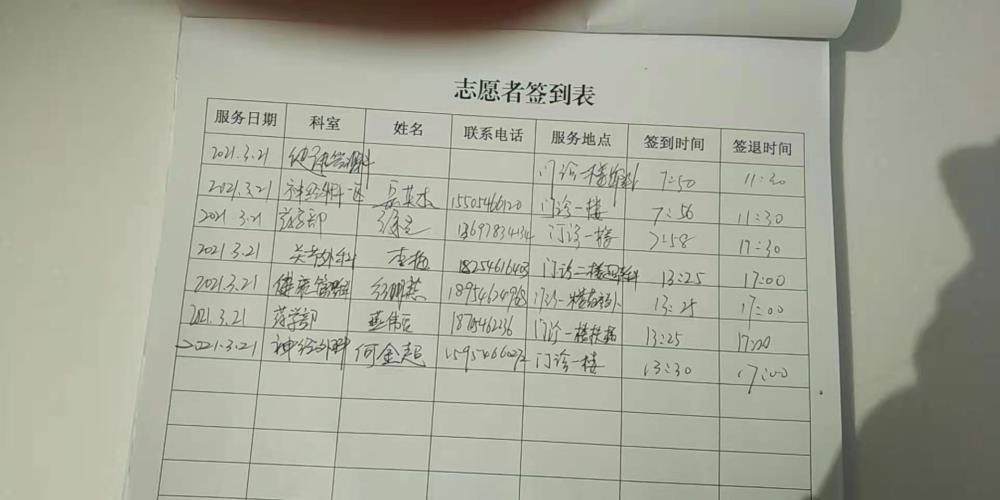 志愿者签到表
服务日期 科室 姓名 联系电话 服务地点 签到时间 签退时间
2021.3.21 健康管理科 门诊一楼 7:50 11:30
2021.3.21 神经内科一区 15505466120 门诊一楼 7:56 11:30
2021.3.21 药学部 13697834134 门诊一楼 7:58 11:30
2021.3.21 关节外科 李梅 18254616403 门诊二楼 13:25 17:00
2021.3.21 健康管理科 18954634968 门诊一楼 13:25 17:00
2021.3.21 药学部 门诊一楼扶梯 13:25 17:00
2021.3.21 神经外科 何金超 15954660272 门诊一楼 13:30 17:00